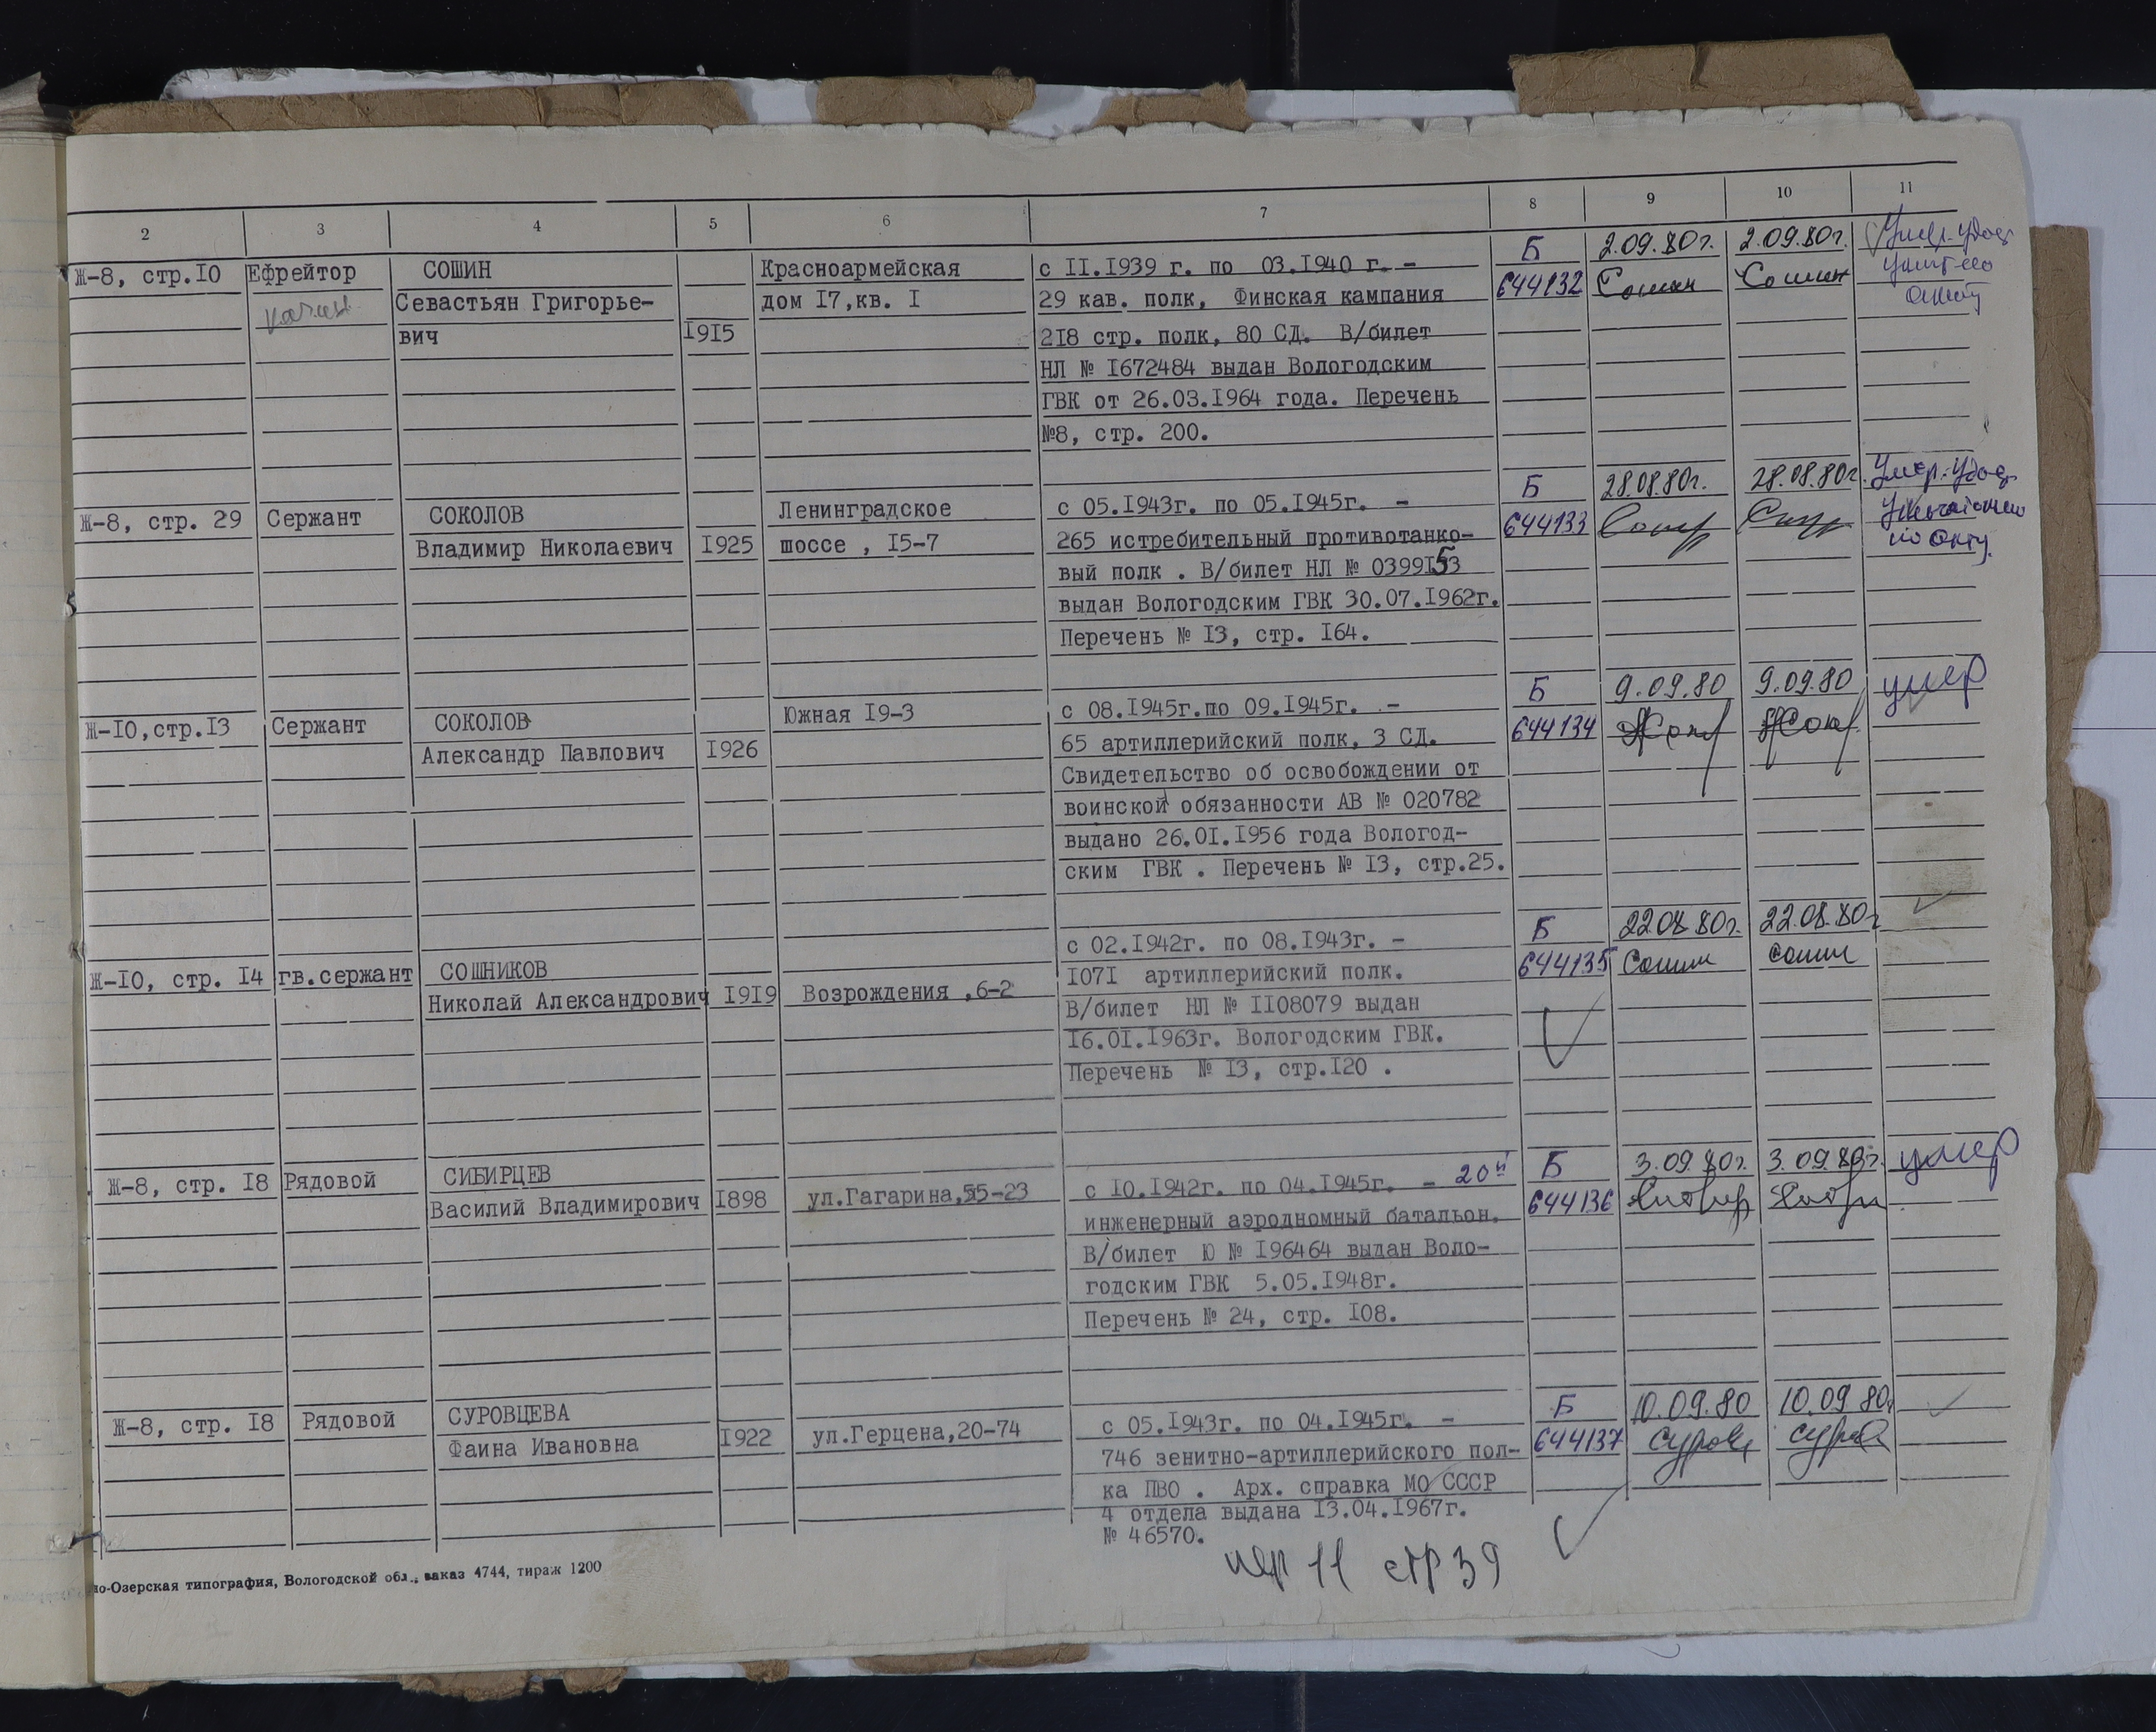 2 3 4 5 6 7 8 9 10 11
Ж-8, стр.I0 Ефрейтор СОШИН Красноармейская с II.I939 г. по 03.I940 г. - Б 2.09.80г. 2.09.80г. Умер. Удос
Севастьян Григорье- дом I7,кв. I 29 кав. полк, Финская кампания 644132 Сошин Сошин
вич I9I5 2I8 стр. полк, 80 СД. В/билет
НЛ № I672484 выдан Вологодским
ГВК от 26.03.I964 года. Перечень
№8, стр. 200.
Ж-8, стр. 29 Сержант СОКОЛОВ Ленинградское с 05.I943г. по 05.I945г. - Б 28.08.80г. 28.08.80г. Умер. Удос
Владимир Николаевич I925 шоссе , I5-7 265 истребительный противотанко- 644133
вый полк . В/билет НЛ № 0399I53 по акту
выдан Вологодским ГВК 30.07.I962г.
Перечень № I3, стр. I64.
Ж-I0,стр.I3 Сержант СОКОЛОВ Южная I9-3 с 08.I945г.по 09.I945г. - Б 9.09.80 9.09.80 умер
Александр Павлович I926 65 артиллерийский полк, 3 СД. 644134
Свидетельство об освобождении от
воинской обязанности АВ № 020782
выдано 26.0I.I956 года Вологод-
ским ГВК . Перечень № I3, стр.25.
Ж-I0, стр. I4 гв.сержант СОШНИКОВ с 02.I942г. по 08.I943г. - Б 22.08.80г. 22.08.80г
Николай Александрович I9I9 Возрождения ,6-2 I07I артиллерийский полк. 644135 Сошн Сошн
В/билет НЛ № II08079 выдан
I6.0I.I963г. Вологодским ГВК.
Перечень № I3, стр.I20 .
Ж-8, стр. I8 Рядовой СИБИРЦЕВ с I0.I942г. по 04.I945г. - 20й Б 3.09.80г. 3.09.80г. умер
Василий Владимирович I898 ул.Гагарина,55-23 инженерный аэродномный батальон. 644136
В/билет Ю № I96464 выдан Воло-
годским ГВК 5.05.I948г.
Перечень № 24, стр. I08.
Ж-8, стр. I8 Рядовой СУРОВЦЕВА с 05.I943г. по 04.I945г. - Б 10.09.80 10.09.80г
Фаина Ивановна I922 ул.Герцена,20-74 746 зенитно-артиллерийского пол- 644137 Суровц
ка ПВО . Арх. справка МО СССР
4 отдела выдана I3.04.I967г.
№ 46570.
пер 11 стр 39
ло-Озерская типография, Вологодской обл., заказ 4744, тираж 1200